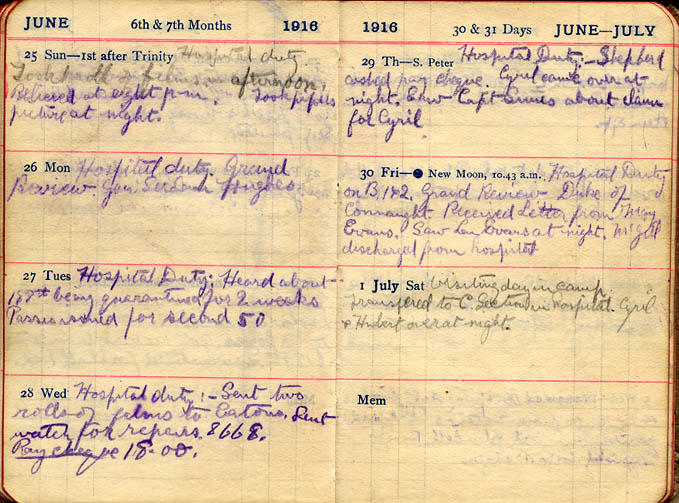 JUNE 6th & 7th Months 1916
25 Sun—1st after Trinity Hospital duty
Took roll of films in afternoon.
Relieved at eight p.m. Took pipils
picture at night.
26 Mon Hospital duty. Grand
Review. Gen Sir Sam Hughes
27 Tues Hospital Duty: Heard about
being quarantined for 2 weeks
for second 50
28 Wed Hospital duty:- Sent two
rolls of films to Eatons. Sent
watch for repairs. 8668.
Pay cheque 18.00.
1916 30 & 31 Days JUNE—JULY
29 Th—S. Peter Hospital Duty:- Shepherd
cashed pay cheque. Cyril came over at
night. Saw Capt about
for Cyril
30 Fri—● New Moon, 10.43 a.m. Hospital Duty
on B, 1&2. Grand Review Duke of
Connaught. Received Letter from May
Evans. Saw Len Evars at night. McGill
discharged from hospital
1 July Sat Visiting day in camp.
Transfered to C. Section in Hospital. Cyril
& Hubert over at night.
Mem